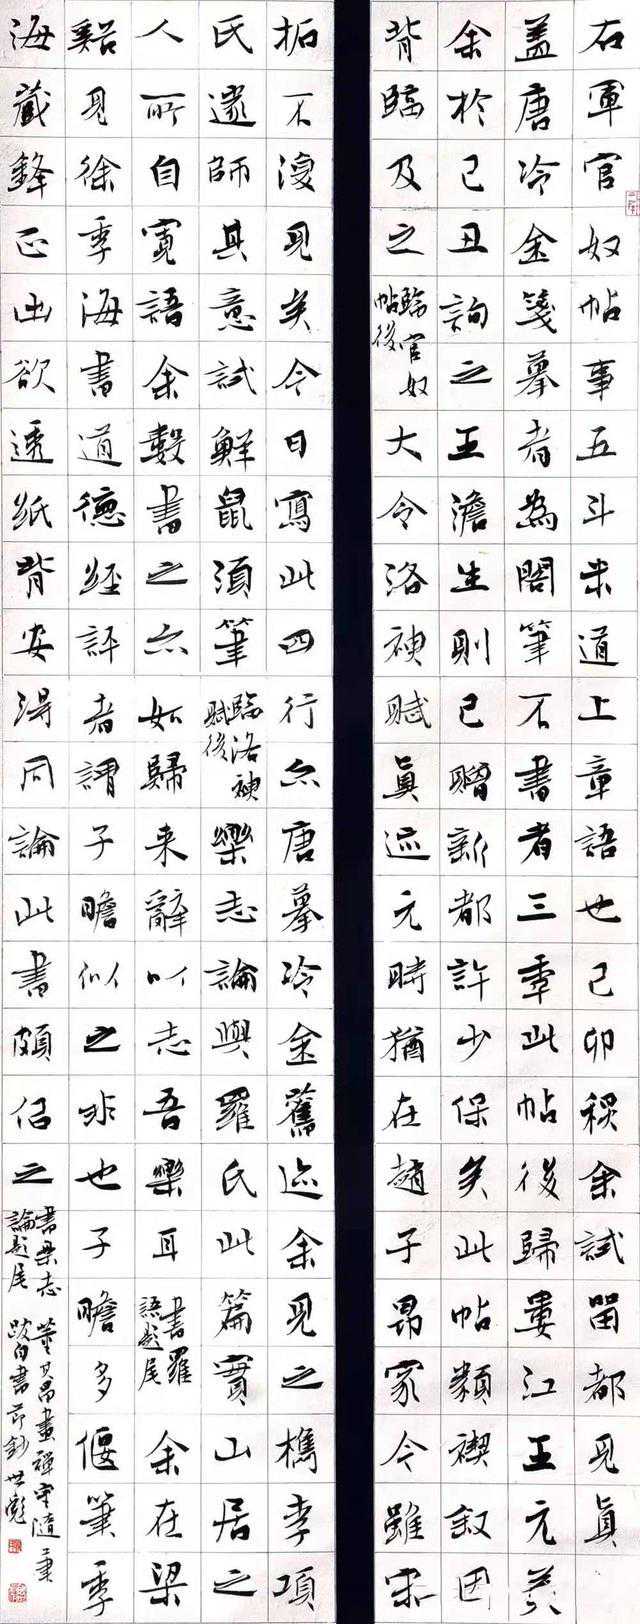 右軍官奴帖事五斗米道上章語也己卯秋余試留都見真
蓋唐冷金箋摹者為閣筆不書者三季此帖後歸婁江王元美
余於己丑詢之王澹生則已贈新都許少保矣此帖類禊叙因
背臨及之臨官奴帖後大令洛神賦真迹元時猶在趙子昂家今雖宋
拓不復見矣今日寫此四行亦唐摹冷金舊迹余見之檇李項
氏遂師其意試鮮鼠須筆臨洛神賦後樂志論與羅氏此篇實山居之
人所自寬語余數書之亦如歸来辭以志吾樂耳書羅語題尾余在梁
谿見徐季海書道德經評者謂子瞻似之非也子瞻多偃筆季
海藏鋒正画欲透紙背安得同論此書頗佀之書樂志論題尾
董其昌畫禪室隨筆
跋自書節鈔世彪